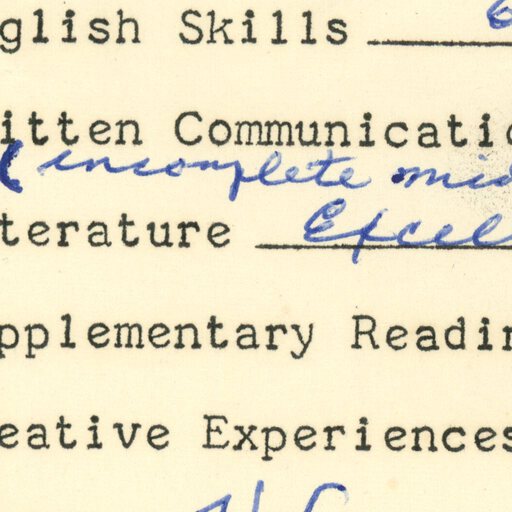 glish Skills
itten Communicatio
(incomplete mid
terature Excel
pplementary Readin
eative Experiences